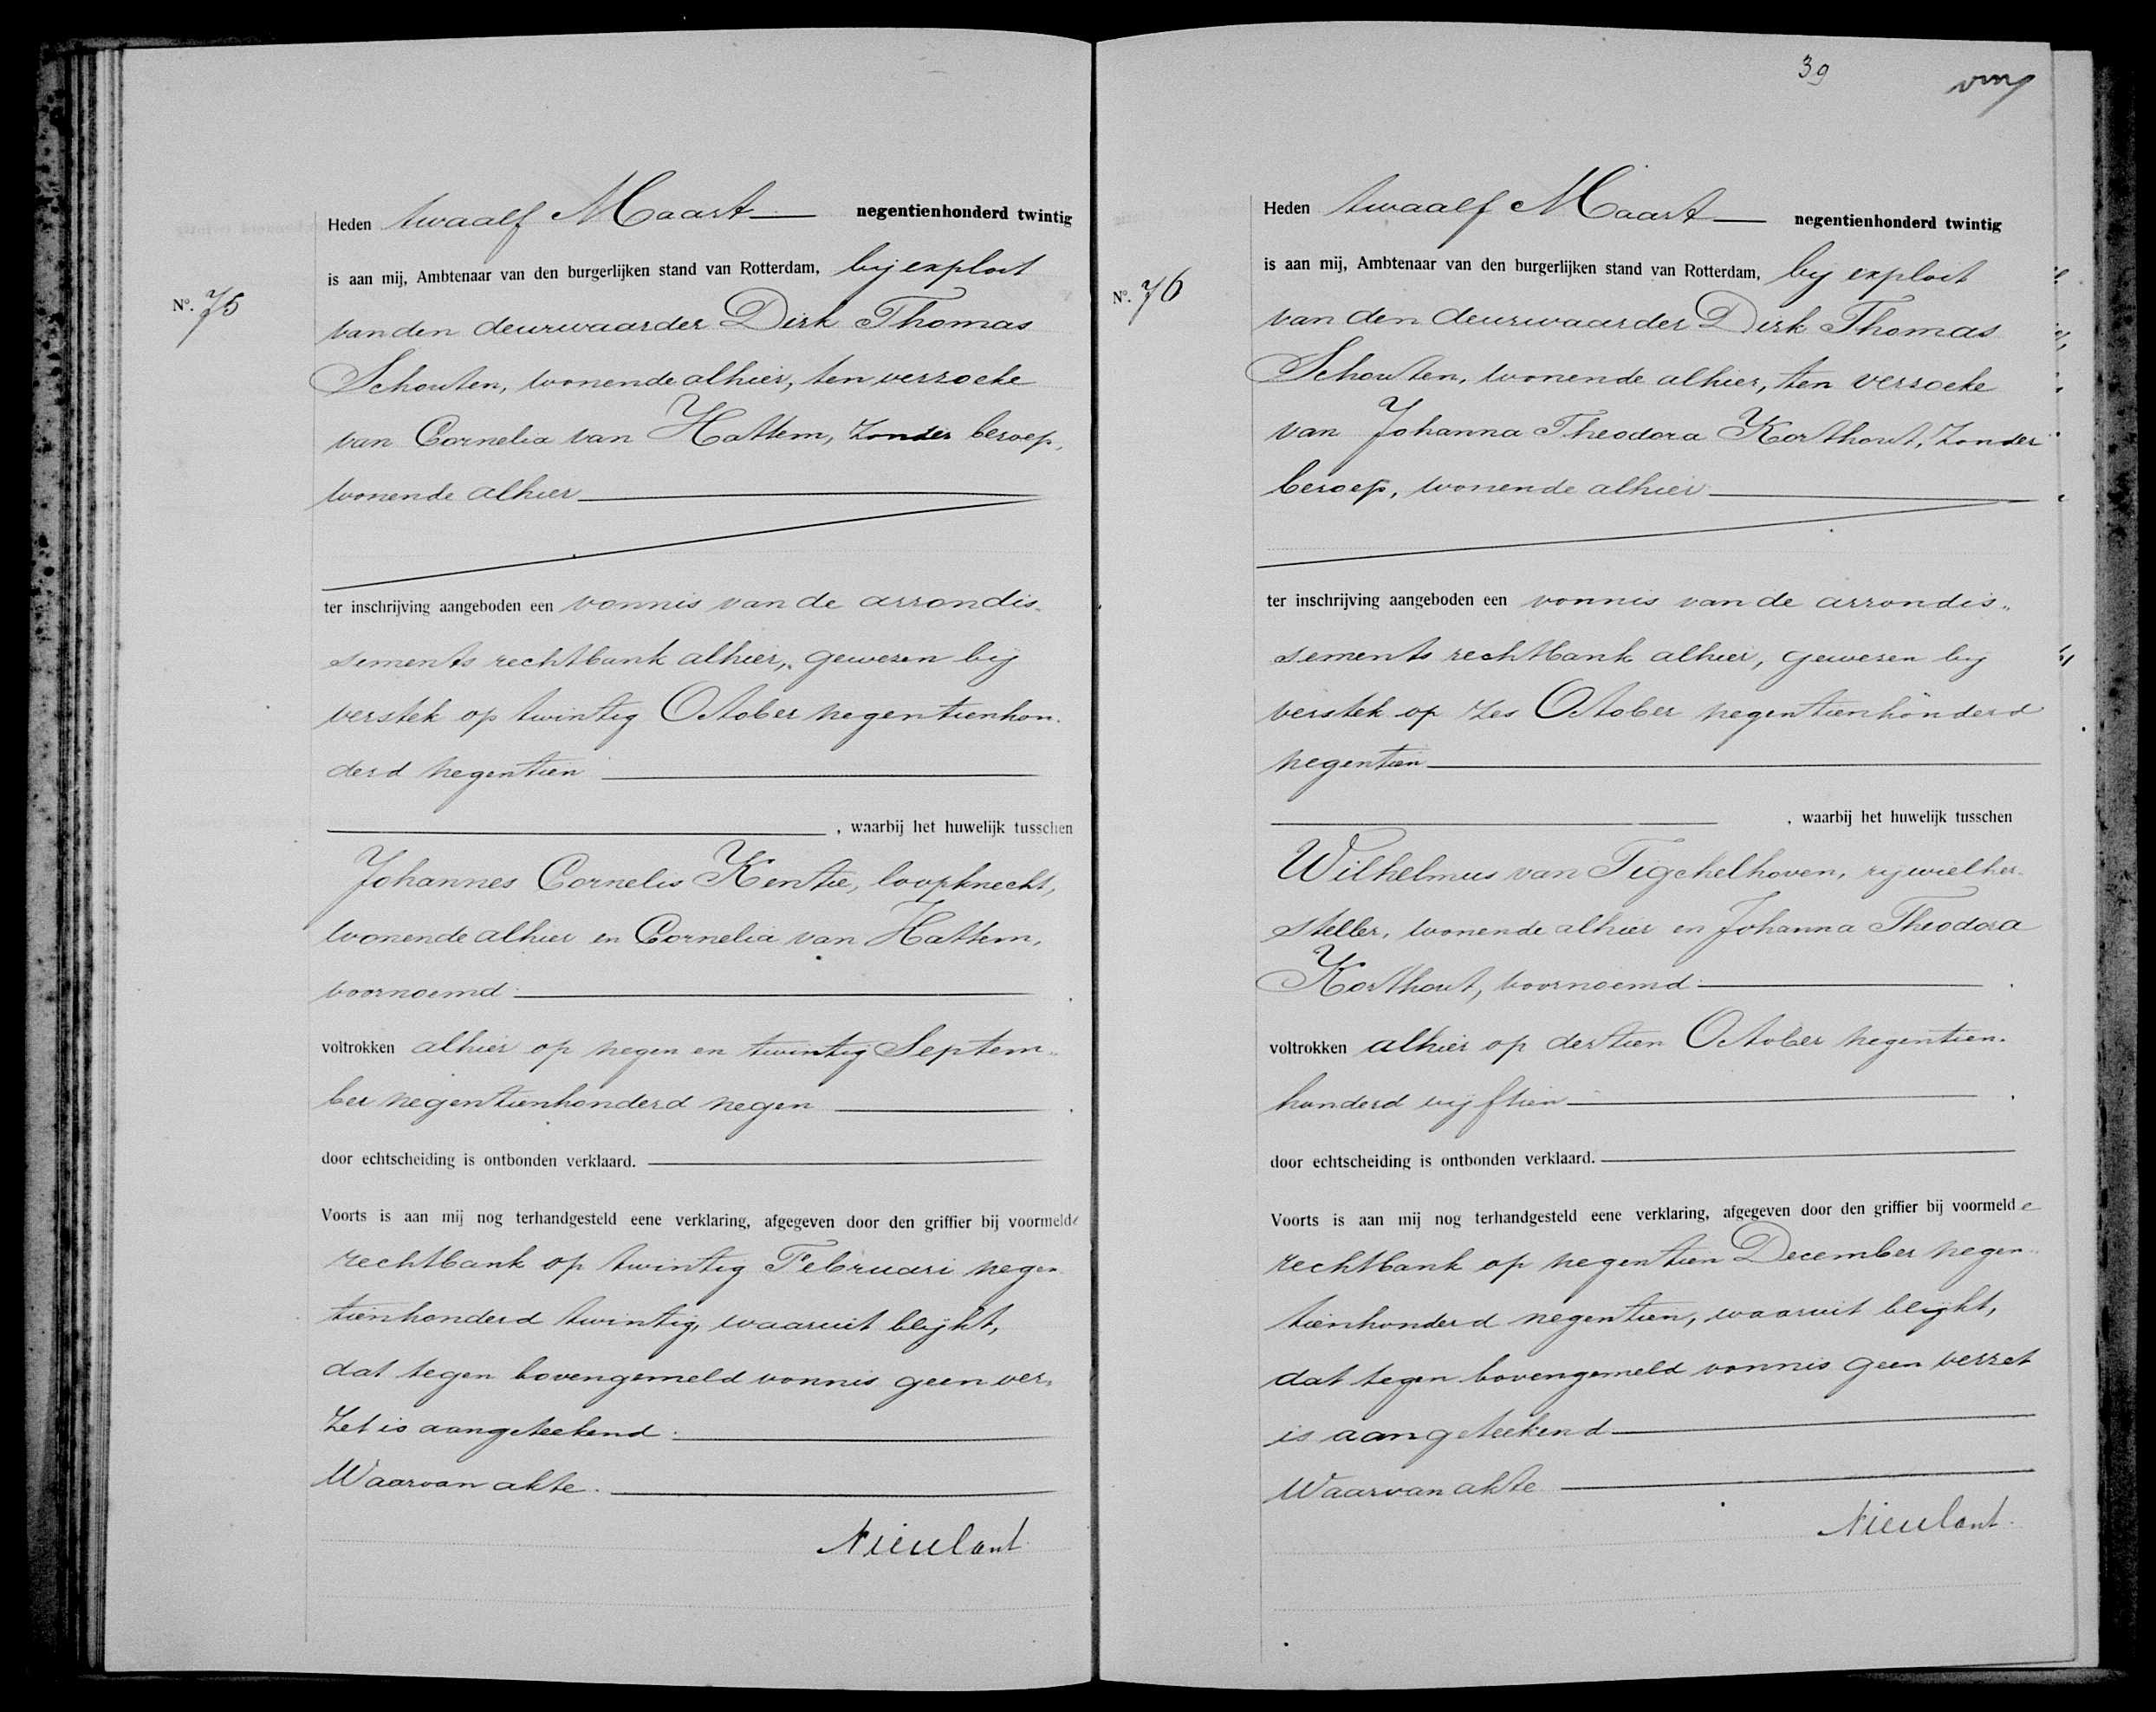 Heden twaalf Maart negentienhonderd twintig
is aan mij, Ambtenaar van den burgerlijken stand van Rotterdam, bij exploit
No. 75
van den deurwaarder Dirk Thomas
Schouten, wonende alhier, ten verzoeke
van Cornelia van Hattem, zonder beroep,
wonende alhier
ter inschrijving aangeboden een vonnis van de arrondis-
sements rechtbank alhier, gewezen bij
verstek op twintig October negentienhon-
derd negentien
, waarbij het huwelijk tusschen
Johannes Cornelis Kentie, loopknecht,
wonende alhier en Cornelia van Hattem,
voornoemd
voltrokken alhier op negen en twintig Septem-
ber negentienhonderd negen
door echtscheiding is ontbonden verklaard.
Voorts is aan mij nog terhandgesteld eene verklaring, afgegeven door den griffier bij voormelde
rechtbank op twintig Februari negen-
tienhonderd twintig, waaruit blijkt,
dat tegen bovengemeld vonnis geen ver-
zet is aangeteekend.
Waarvan akte.
Nieulant
39
Heden twaalf Maart negentienhonderd twintig
is aan mij, Ambtenaar van den burgerlijken stand van Rotterdam, bij exploit
No. 76
van den deurwaarder Dirk Thomas
Schouten, wonende alhier, ten verzoeke
van Johanna Theodora Korthout, zonder
beroep, wonende alhier
ter inschrijving aangeboden een vonnis van de arrondis-
sements rechtbank alhier, gewezen bij
verstek op zes October negentienhonderd
negentien
, waarbij het huwelijk tusschen
Wilhelmus van Tigchelhoven, rijwielher-
steller, wonende alhier en Johanna Theodora
Korthout, voornoemd
voltrokken alhier op dertien October negentien-
honderd vijftien
door echtscheiding is ontbonden verklaard.
Voorts is aan mij nog terhandgesteld eene verklaring, afgegeven door den griffier bij voormelde
rechtbank op negentien December negen-
tienhonderd negentien, waaruit blijkt,
dat tegen bovengemeld vonnis geen verzet
is aangeteekend
Waarvan akte
Nieulant